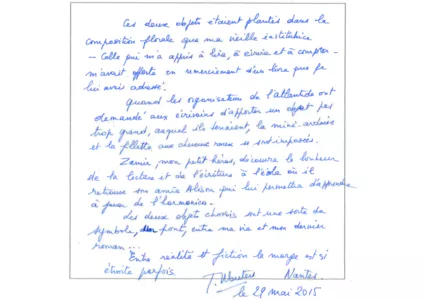 Ces deux objets étaient plantés dans la
composition florale que ma vieille institutrice
- Celle qui m'a appris à lire, à écrire et à compter -
m'avait offerte en remerciement d'un livre que je
lui avais adressé.
Quand les organisateurs de l'atlantide ont
demandé aux écrivains d'apporter un objet pas
trop grand, auquel ils tenaient, la mini-ardoise
et la fillette aux cheveux roux se sont imposés.
Zamir, mon petit héros, découvre le bonheur
de la lecture et de l'écriture à l'école où il
retrouve son amie Alison qui lui permettra d'apprendre
à jouer de l'harmonica.
Les deux objets choisis sont une sorte de
symbole, pont, entre ma vie et mon dernier
roman...
Entre réalité et fiction la marge est si
étroite parfois.
Nantes.
le 29 mai 2015